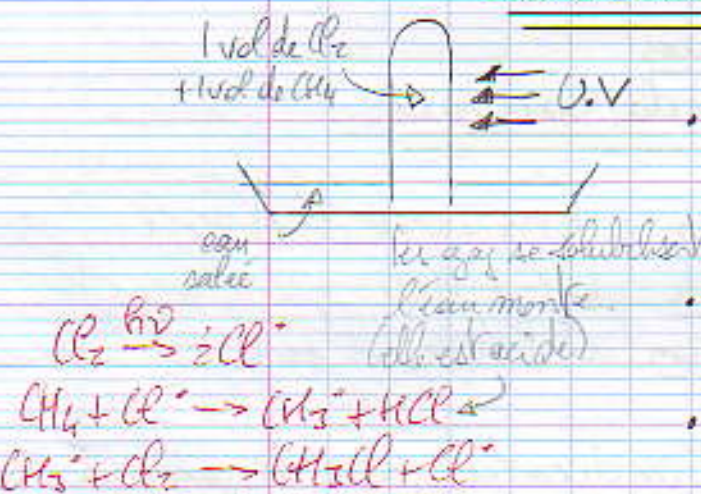 1 vol de Cl₂
+ 1 vol de CH₄
U.V
eau
salée
les gaz se solubilisent
l'eau monte...
(elle est acide)
Cl₂ hν → 2Cl•
CH₄ + Cl• → CH₃• + HCl
CH₃• + Cl₂ → CH₃Cl + Cl•